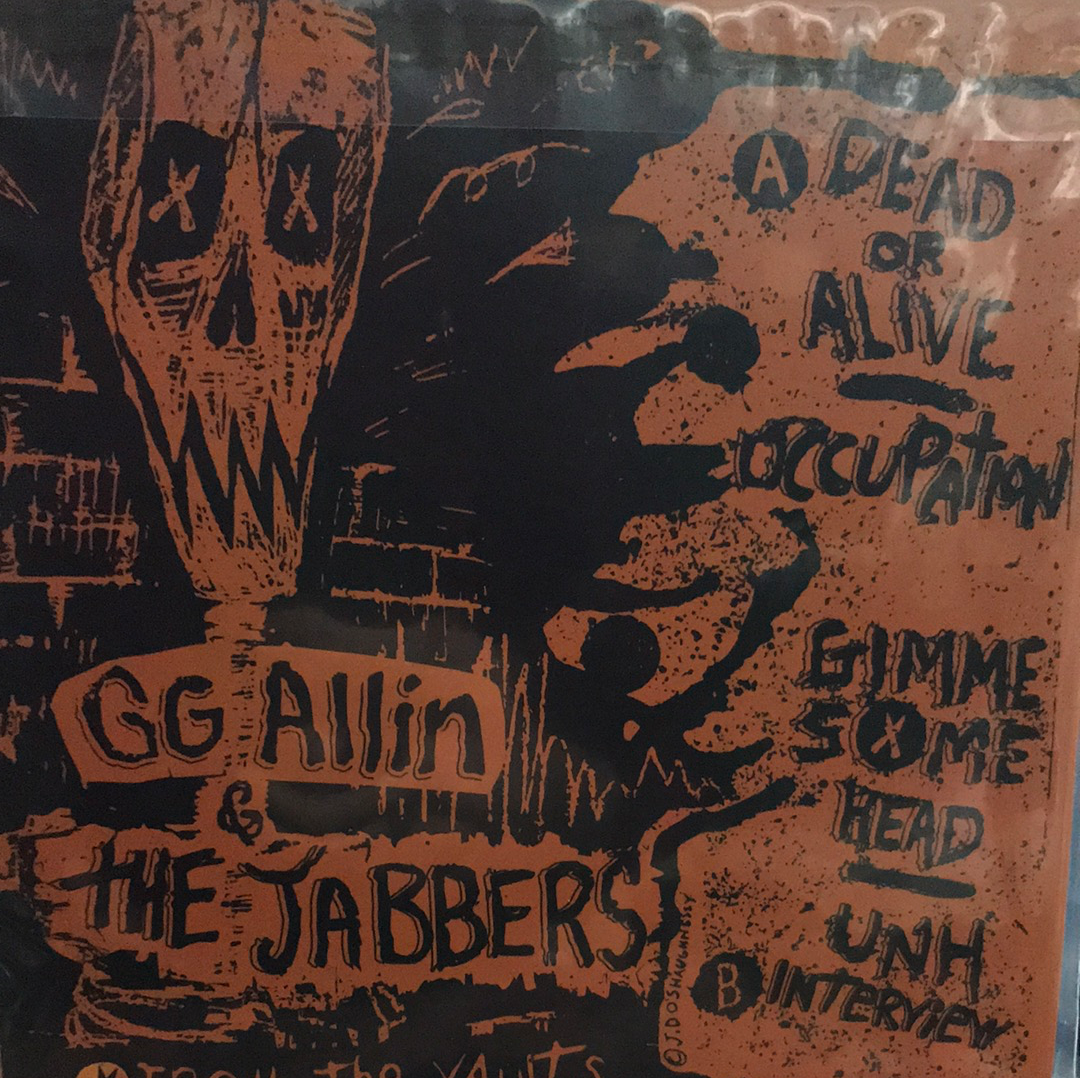 A DEAD
OR
ALIVE
OCCUPATION
GIMME
SOME
HEAD
UNH
B INTERVIEW
GG Allin
&
THE JABBERS
©J.DOSHAUGHNESSY
FROM the VAULTS